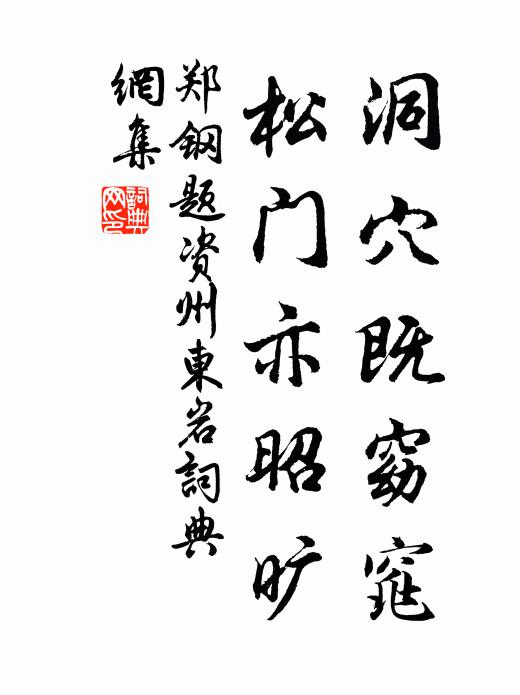 洞穴既窈窕
松门亦昭旷
郑钢题资州東岩词典
網集
詞典
网印